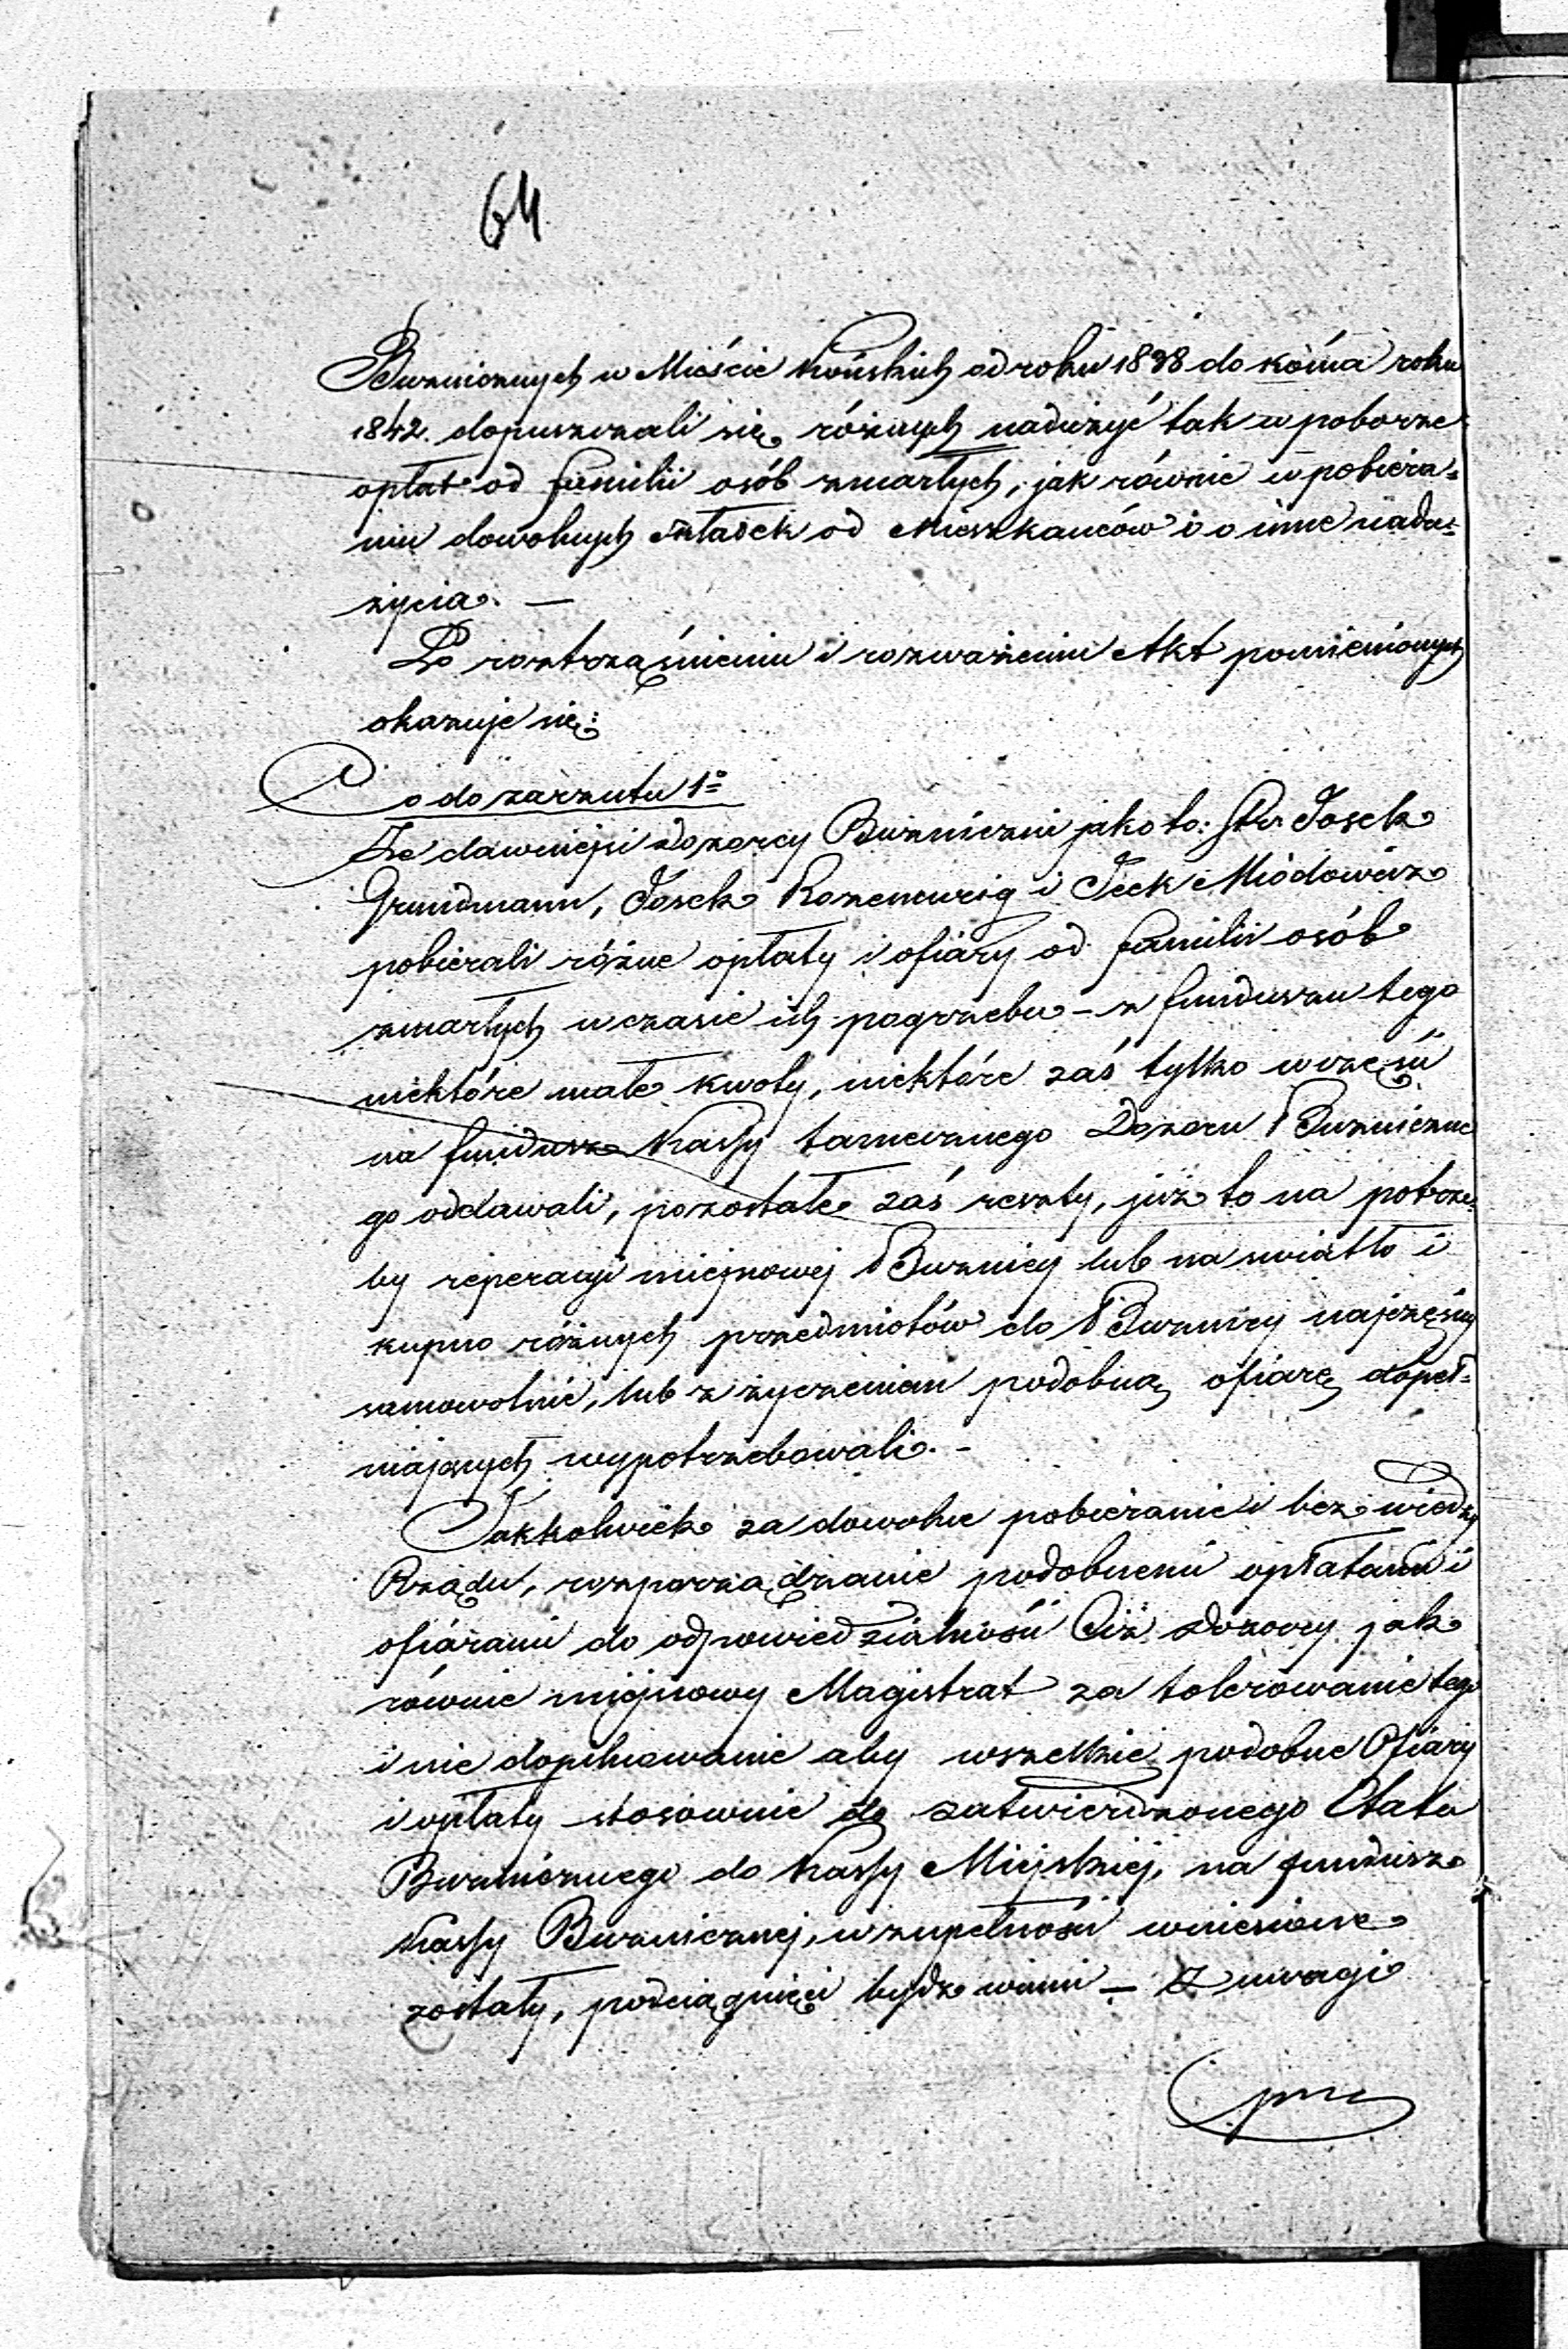 64
Bużnicznych w Mieście Końskich od roku 1838 do końca roku
1842. dopuszczali się różnych nadużyć tak w poborze
opłat od familii osób zmarłych, jak równie w pobiera=
niu dowolnych składek od Mieszkańców i o inne nadu=
życia. —
Po roztrząśnieniu i rozważeniu Akt pomienionych
okazuje się:
Co do zarzutu 1º
Że dawniejsi dozorcy Bużniczni jako to: Josek
Grundmann, Josek Rozencweig i Icek Miodowicz
pobierali różne opłaty i ofiary od familii osób
zmarłych w czasie ich pogrzebu – z funduszu tego
niektóre małe kwoty, niektóre zaś tylko w części
na fundusz Kassy tamecznego Dozoru Bużniczne
go oddawali, pozostałe zaś reszty, już to na potrze=
by reperacyi miejscowej Bużnicy lub na swiatło i
kupno różnych przedmiotów do Bużnicy najczęściej
samowolnie, lub z życzeniem podobną ofiarę dopeł=
niających wypotrzebowali. –
Jakkolwiek za dowolne pobieranie i bez wiedzy
Rządu, rozporządzanie podobnemi opłatami i
ofiarami do odpowiedzialności Ciż dozorcy jak
równie miejscowy Magistrat za tolerowanie tego
i nie dopilnowanie aby wszelkie podobne Ofiary
i opłaty stosownie do zatwierdzonego Etatu
Bużnicznego do Kassy Miejskiej, na fundusz
Kassy Bużnicznej, w zupełności wniesione
zostały, pociągnięci bydź winni – Z uwagi